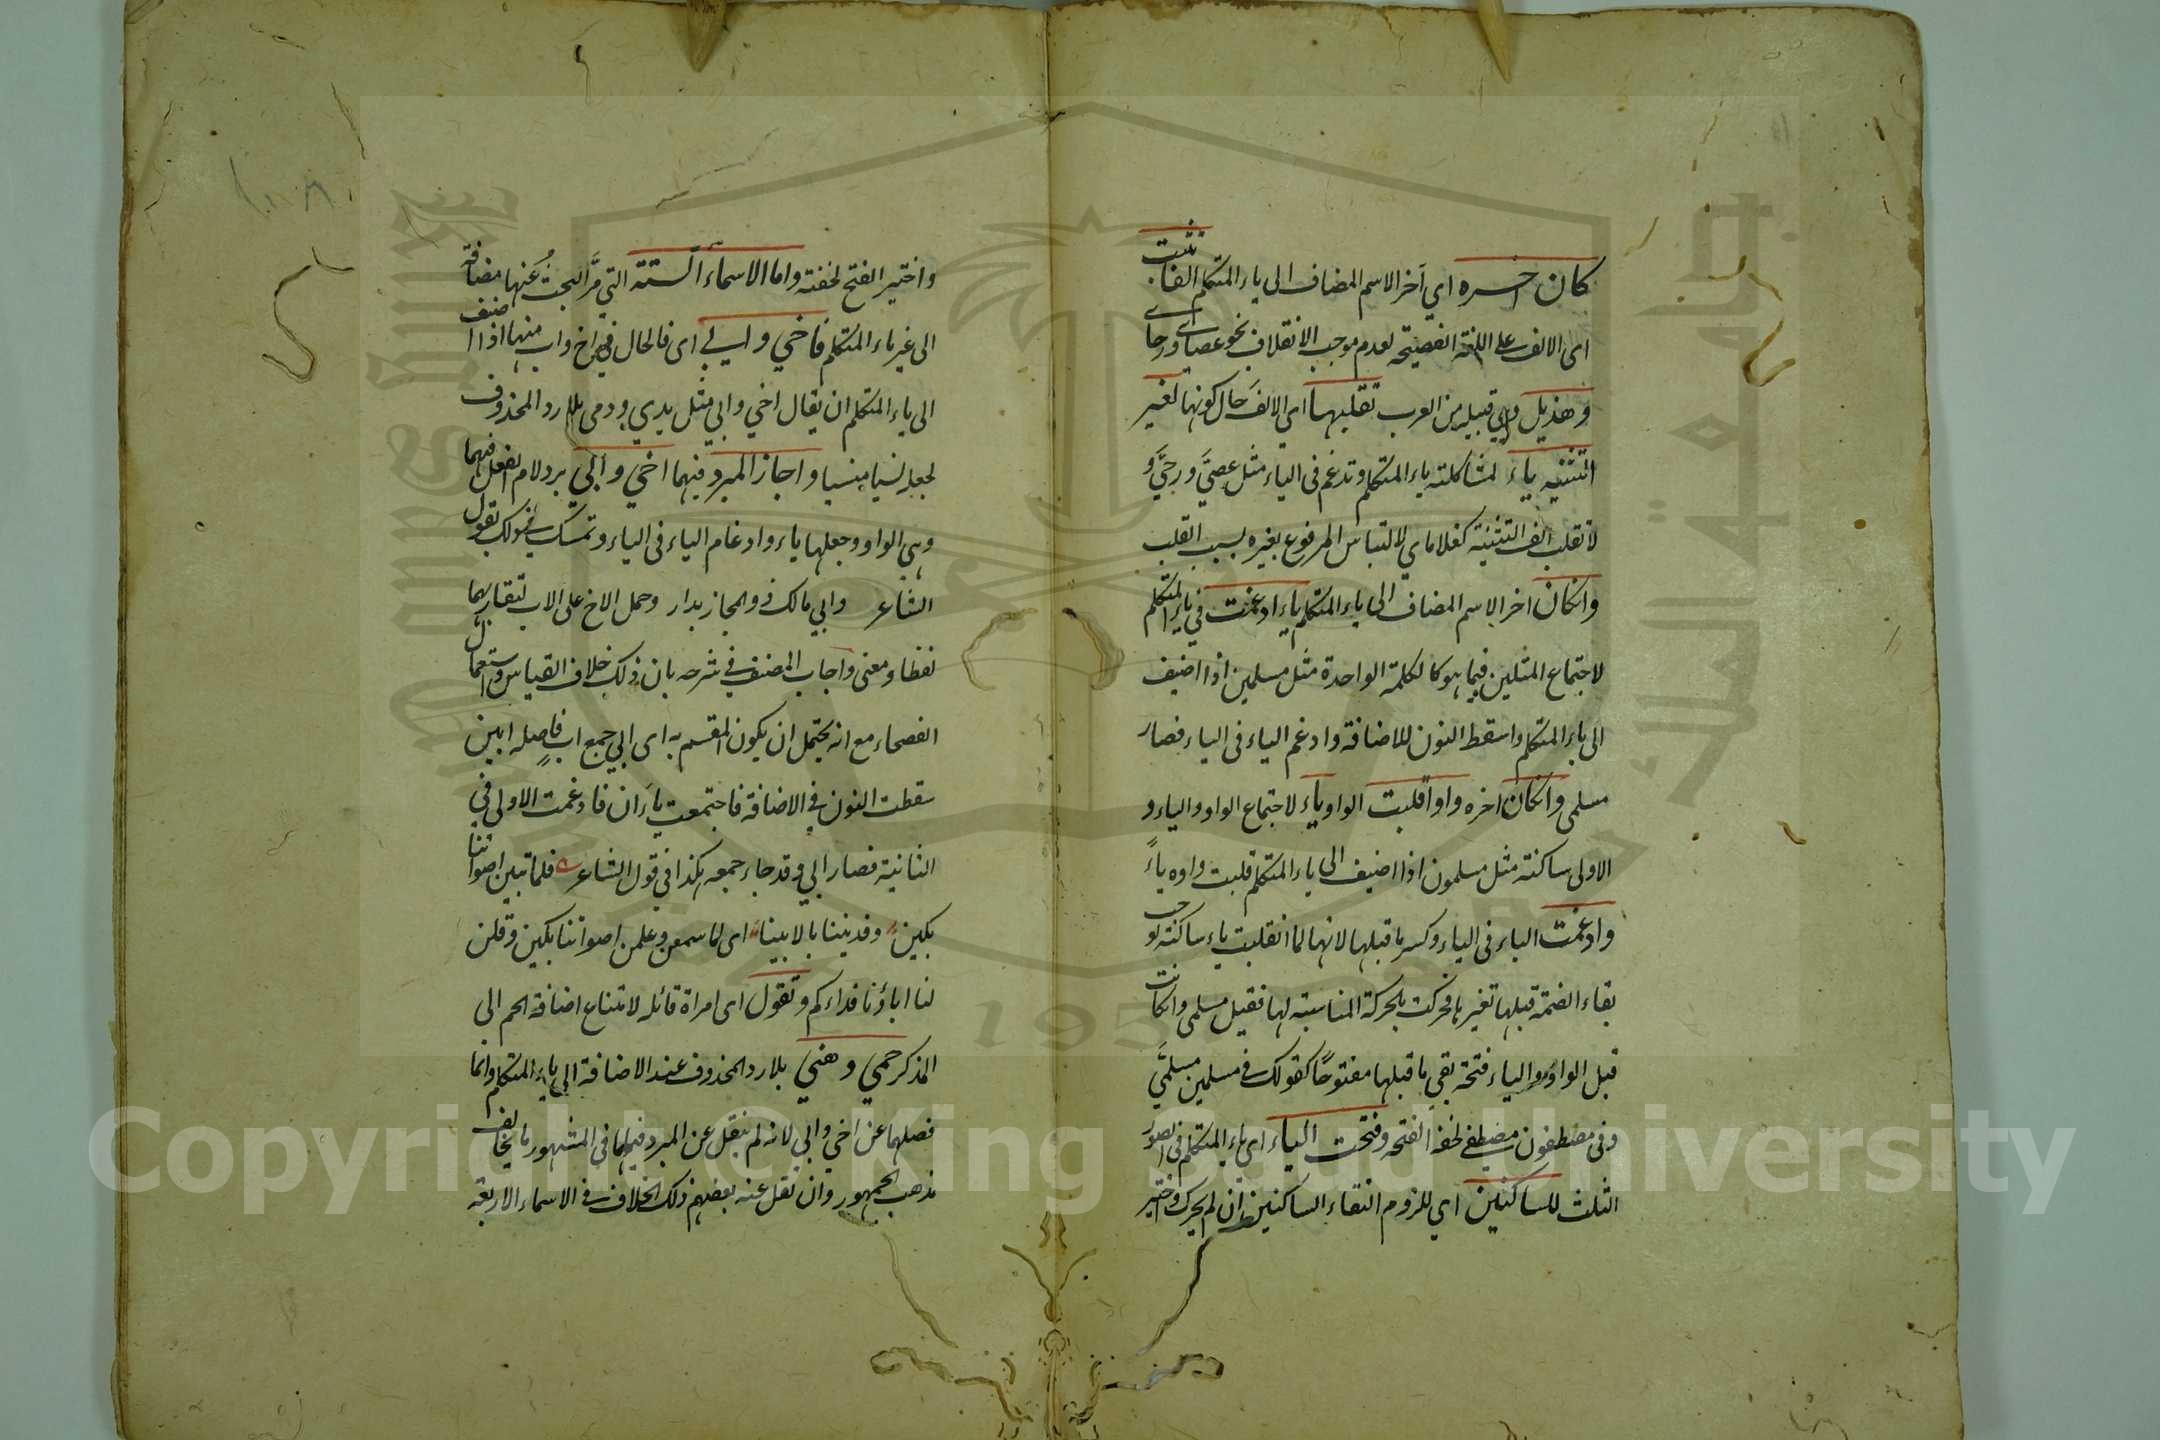 كان اخره اي آخر الاسم المضاف الى ياء المتكلم الفا تثبت
اى الالف على اللغة الفصيحة لعدم موجب الانقلاب نحو عصاى ورحاى
وهذيل وهي قبيلة من العرب تقلبها اي الالف حال كونها لغير
التثنية ياء لمشاكلته ياء المتكلم وتدغم فى الياء مثل عصيَّ ورحيَّ و
لا تقلب الف التثنية كغلاماي لالتباس المرفوع بغيره بسبب القلب
وانكان اخر الاسم المضاف الى ياء المتكلم ياء ادغمت في ياء المتكلم
لاجتماع المثلين فيما هو كالكلمة الواحدة مثل مسلمين اذا اضيف
الى ياء المتكلم واسقط النون للاضافة وادغم الياء فى الياء فصار
مسلمى وانكان اخره واوا قلبت الواو ياء لاجتماع الواو والياء و
الاولى ساكنة مثل مسلمون اذا اضيف الى ياء المتكلم قلبت واوه ياءً
وادغمت الياء فى الياء وكسر ما قبلها لانها لما انقلبت ياء ساكنة
بقاء الضمة قبلها تغيرها فحركت بالحركة المناسبة لها فقيل مسلمى وانكانت
قبل الواو والياء فتحة بقي ما قبلها مفتوحًا كقولك فى مسلمين مسلمَيَّ
وفى مصطفون مصطفى لخفة الفتحة وفتحت الياء اى ياء المتكلم فى الصور
الثلث للساكنين اي للزوم التقاء الساكنين ان لم يحرك واختير
واختير الفتح لخفته واما الاسماء الستة التي مرَّ البحث عنها مضافة
الى غير ياء المتكلم فاخي وابي اى فالحال في اخ واب منها اذا اضيف
الى ياء المتكلم ان يقال اخي وابي مثل يدي ودمى بلا رد المحذوف
لجعله نسيا منسيا واجاز المبرد فيهما اخي وابي برد لام الفعل فيهما
وهي الواو وجعلها ياء وادغام الياء فى الياء وتمسك في ذلك بقول
الشاعر وابي مالك ذو المجاز بدار وحمل الاخ على الاب لتقاربهما
لفظا ومعنى واجاب المصنف في شرحه بان ذلك خلاف القياس واستعمال
الفصحاء مع انه يحتمل ان يكون المقسم به اى ابي جمع اب فاصله ابين
سقطت النون في الاضافة فاجتمعت ياءان فادغمت الاولى في
الثانية فصار ابي وقد جاء جمعه هكذا في قول الشاعر فلما تبين اصواتنا
بكين وفديننا بالابينا اى لما سمعن وعلمن اصواتنا بكين وقلن
لنا اباؤنا فداءكم وتقول اى امراة قائله لامتناع اضافة الحم الى
المذكر حمي وهني بلا رد المحذوف عند الاضافة الى ياء المتكلم وانما
فصلهما عن اخي وابي لانه لم ينقل عن المبرد فيهما في المشهور ما يخالف
مذهب الجمهور وان نقل عنه بعضهم ذلك الخلاف في الاسماء الاربعة
Copyright © King Saud University
1957